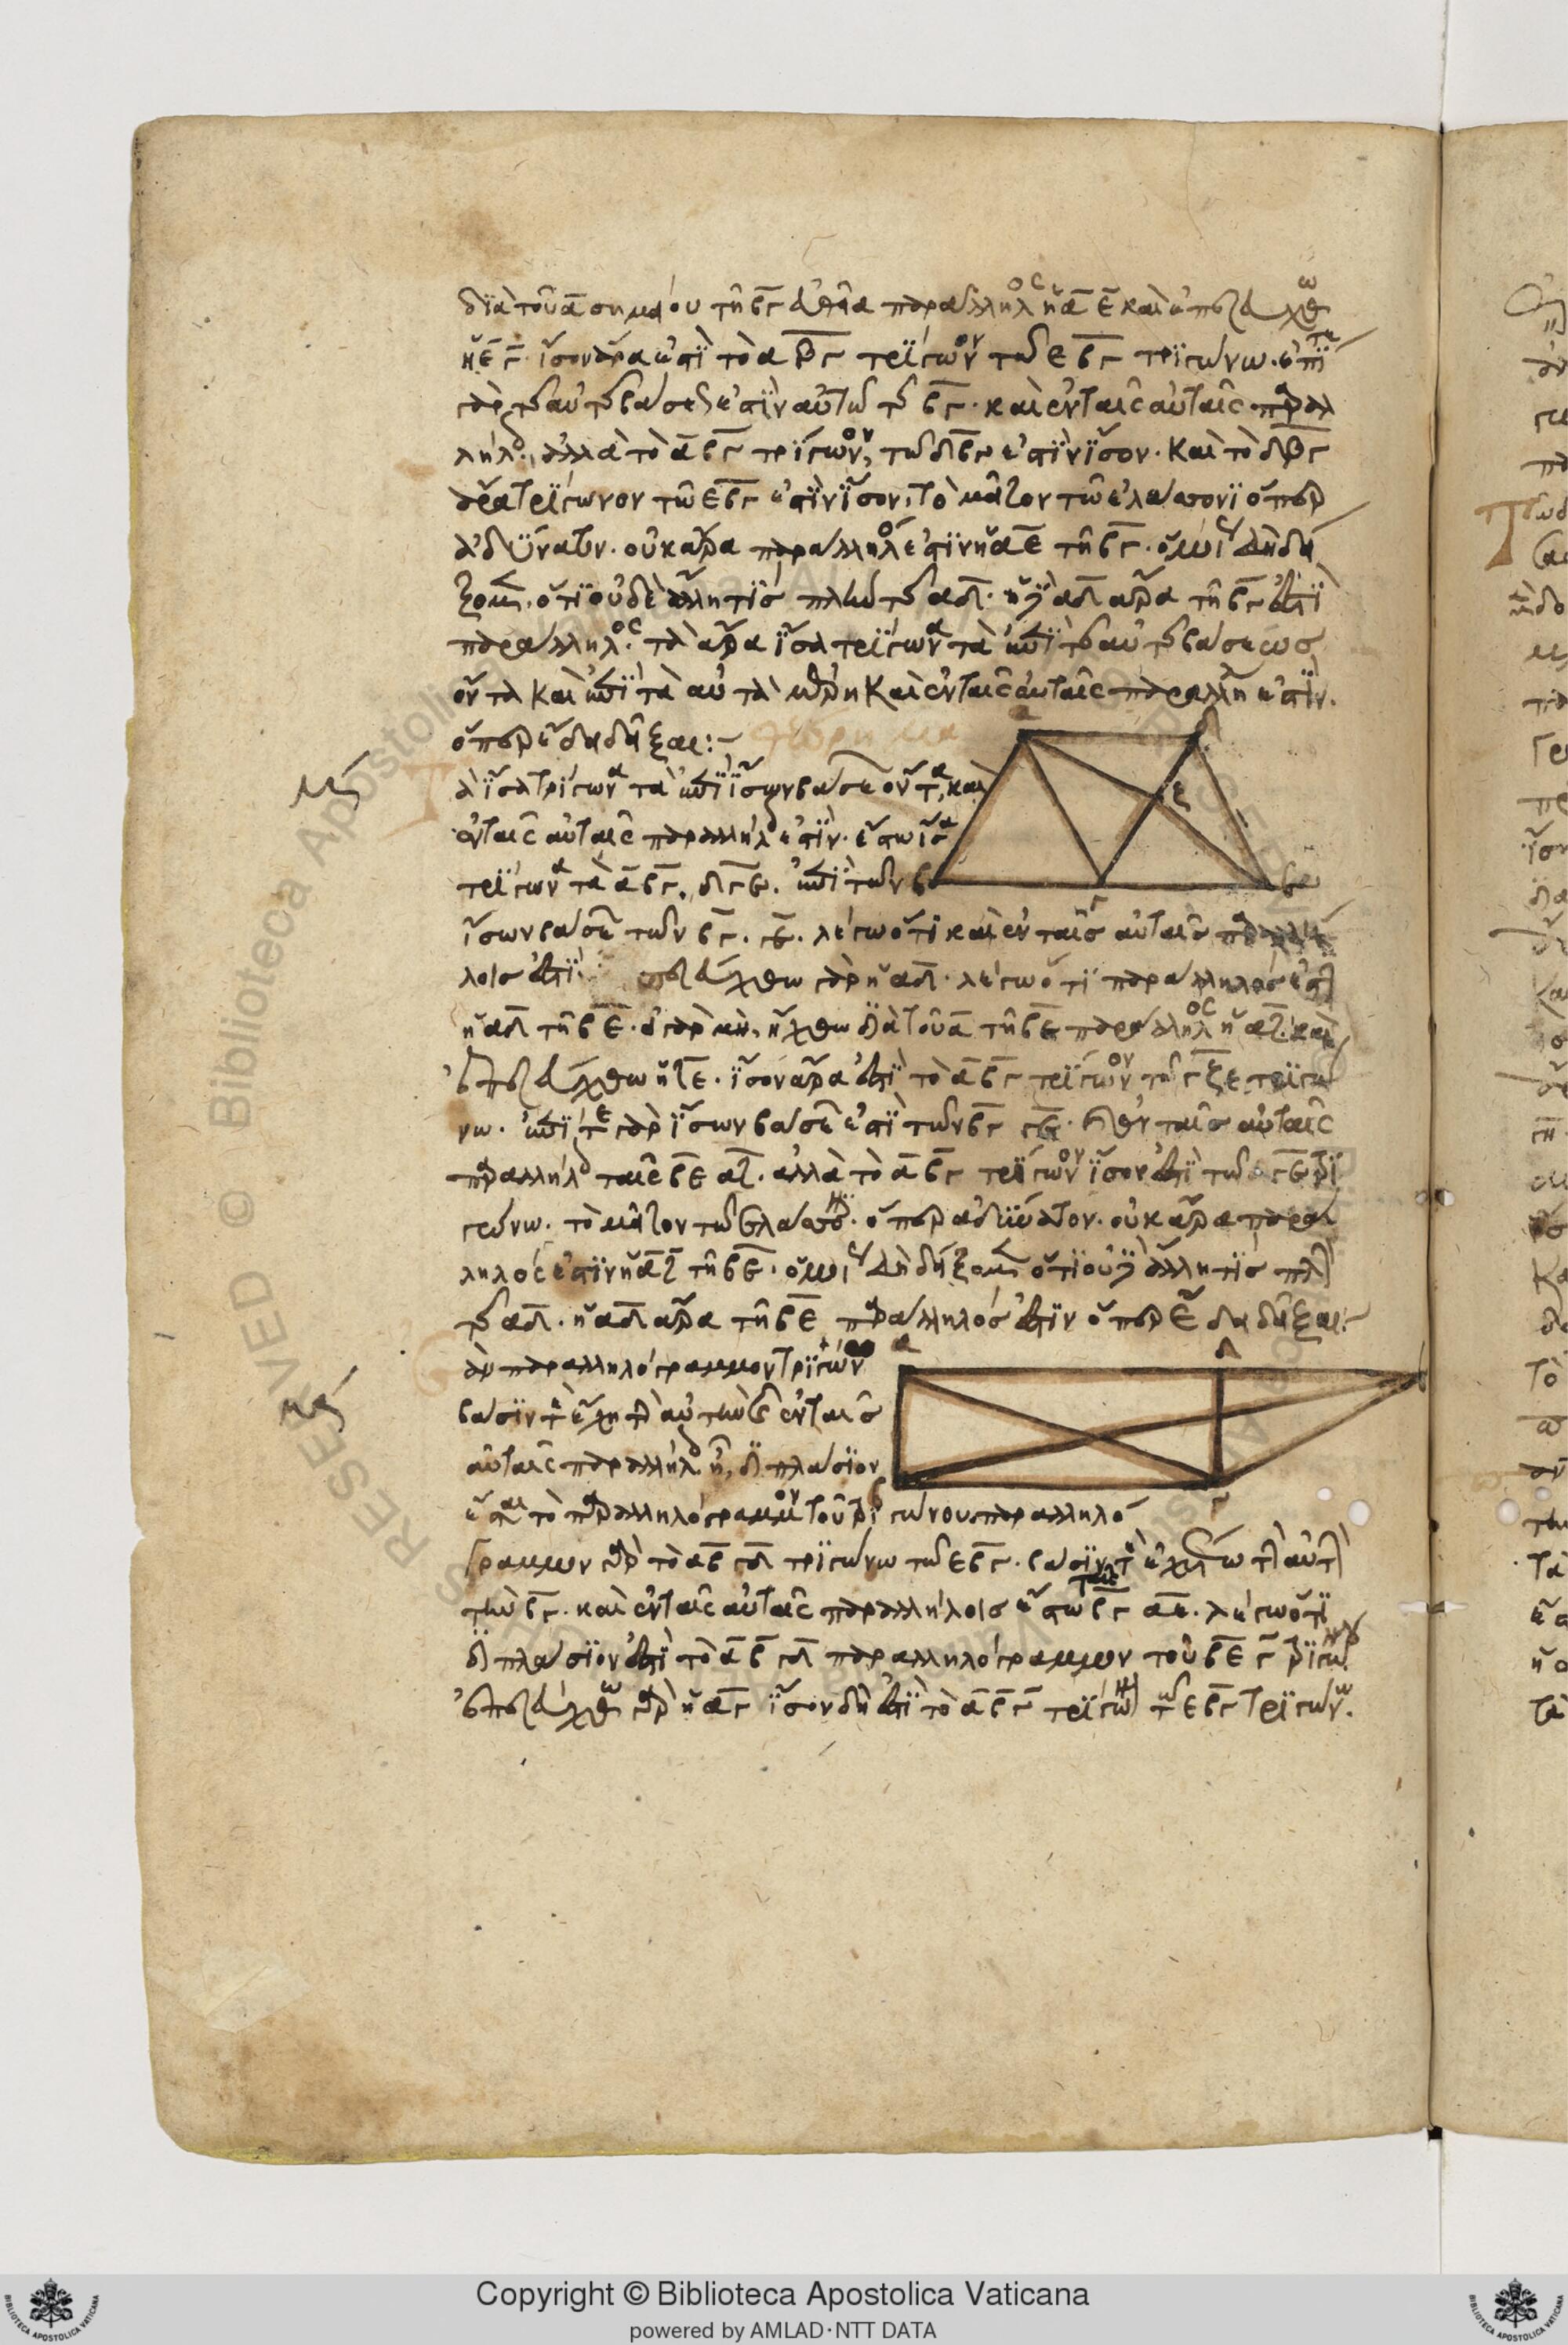 διὰ τοῦ α σημείου τῆ βγ εὐθεία παράλληλος ἡ αε καὶ ἐπεζεύχθω
ἡ εγ. ἴσον ἄρα ἐστὶ τὸ αβγ τρίγωνον τῶ εβγ τριγώνω. ἐπί τε
γὰρ τῆς αὐτῆς βάσεώς ἐστιν αὐτῶ τῆς βγ. καὶ ἐν ταῖς αὐταῖς παραλ
λήλοις. ἀλλὰ τὸ αβγ τρίγωνον, τῶ δβγ ἐστὶν ἴσον. καὶ τὸ δβγ
ἄρα τρίγωνον τῶ εβγ ἐστὶν ἴσον, τὸ μεῖζον τῶ ἐλάσσονι ὅπερ
ἀδύνατον. οὐκ ἄρα παράλληλός ἐστιν ἡ αε τῆ βγ. ὁμοίως δὴ δεί
ξομεν. ὅτι οὐδὲ ἄλλη τις πλὴν τῆς αδ. ἡ αδ ἄρα τῆ βγ ἐστὶ
παράλληλος. τὰ ἄρα ἴσα τρίγωνα τὰ ἐπὶ τῆς αὐτῆς βάσεως
ὄντα καὶ ἐπὶ τὰ αὐτὰ μέρη καὶ ἐν ταῖς αὐταῖς παραλλήλοις ἐστίν.
ὅπερ ἔδει δεῖξαι:- θεώρημα
Τὰ ἴσα τρίγωνα τὰ ἐπὶ ἴσων βάσεων ὄντα, καὶ
ἐν ταῖς αὐταῖς παραλλήλοις ἐστίν. ἔστω ἴσα
τρίγωνα τὰ αβγ. δγε. ἐπὶ τῶν
ἴσων βάσεων τῶν βγ. γε. λέγω ὅτι καὶ ἐν ταῖς αὐταῖς παραλλή
λοις ἐστί. ἐπεζεύχθω γὰρ ἡ αδ. λέγω ὅτι παράλληλός ἐστιν
ἡ αδ τῆ βε. εἰ γὰρ μὴ, ἤχθω διὰ τοῦ α τῆ βε παράλληλος ἡ αζ. καὶ
ἐπεζεύχθω ἡ ζε. ἴσον ἄρα ἐστὶ τὸ αβγ τρίγωνον τῶ γζε τριγώ
νω. ἐπί τε γὰρ ἴσων βάσεών ἐστι τῶν βγ γε. καὶ ἐν ταῖς αὐταῖς
παραλλήλοις ταῖς βε αζ. ἀλλὰ τὸ αβγ τρίγωνον ἴσον ἐστὶ τῶ δγε τρι
γώνω. τὸ μεῖζον τῶ ἐλάσσονι. ὅπερ ἀδύνατον. οὐκ ἄρα παράλ
ληλός ἐστιν ἡ αζ τῆ βε. ὁμοίως δὴ δείξομεν ὅτι οὐδὲ ἄλλη τις πλὴν
τῆς αδ. ἡ αδ ἄρα τῆ βε παράλληλός ἐστιν ὅπερ ἔδει δεῖξαι:-
Ἐὰν παραλληλόγραμμον τριγώνω
βάσιν τε ἔχη τὴν αὐτὴν καὶ ἐν ταῖς
αὐταῖς παραλλήλοις ἦ, διπλάσιον
ἔσται τὸ παραλληλόγραμμον τοῦ τριγώνου παραλληλό
γραμμον γὰρ τὸ αβγδ τριγώνω τῶ εβγ. βάσιν τε ἐχέτω τὴν αὐτὴν
τὴν βγ. καὶ ἐν ταῖς αὐταῖς παραλλήλοις ἔστω ταῖς βγ αε. λέγω ὅτι
διπλάσιόν ἐστι τὸ αβγδ παραλληλόγραμμον τοῦ βεγ τριγώνου
ἐπεζεύχθω γὰρ ἡ αγ ἴσον δή ἐστι τὸ αβγ τρίγωνον τῶ εβγ τριγώνω.